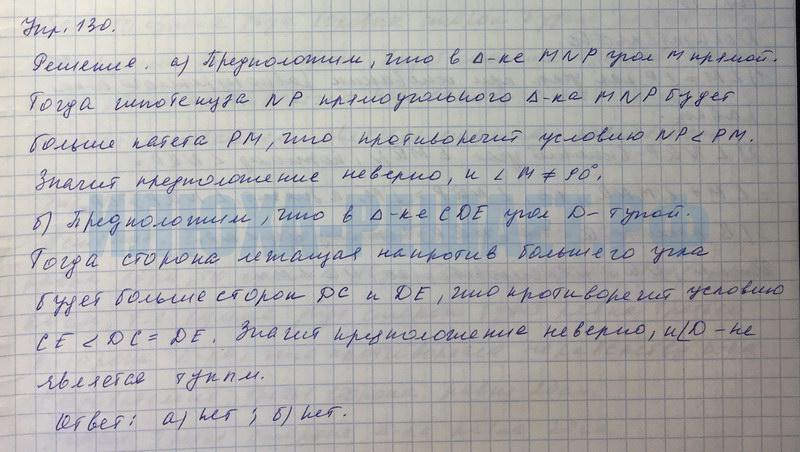 Упр. 130.
Решение. а) Предположим, что в Δ-ке MNP угол M прямой.
Тогда гипотенуза NP прямоугольного Δ-ка MNP будет
больше катета PM, что противоречит условию NP < PM.
Значит предположение неверно, и ∠M ≠ 90°.
б) Предположим, что в Δ-ке CDE угол D - тупой.
Тогда сторона лежащая напротив большего угла
будет больше сторон DC и DE, что противоречит условию
CE < DC = DE. Значит предположение неверно, и ∠D - не
является тупым.
Ответ: а) нет; б) нет.